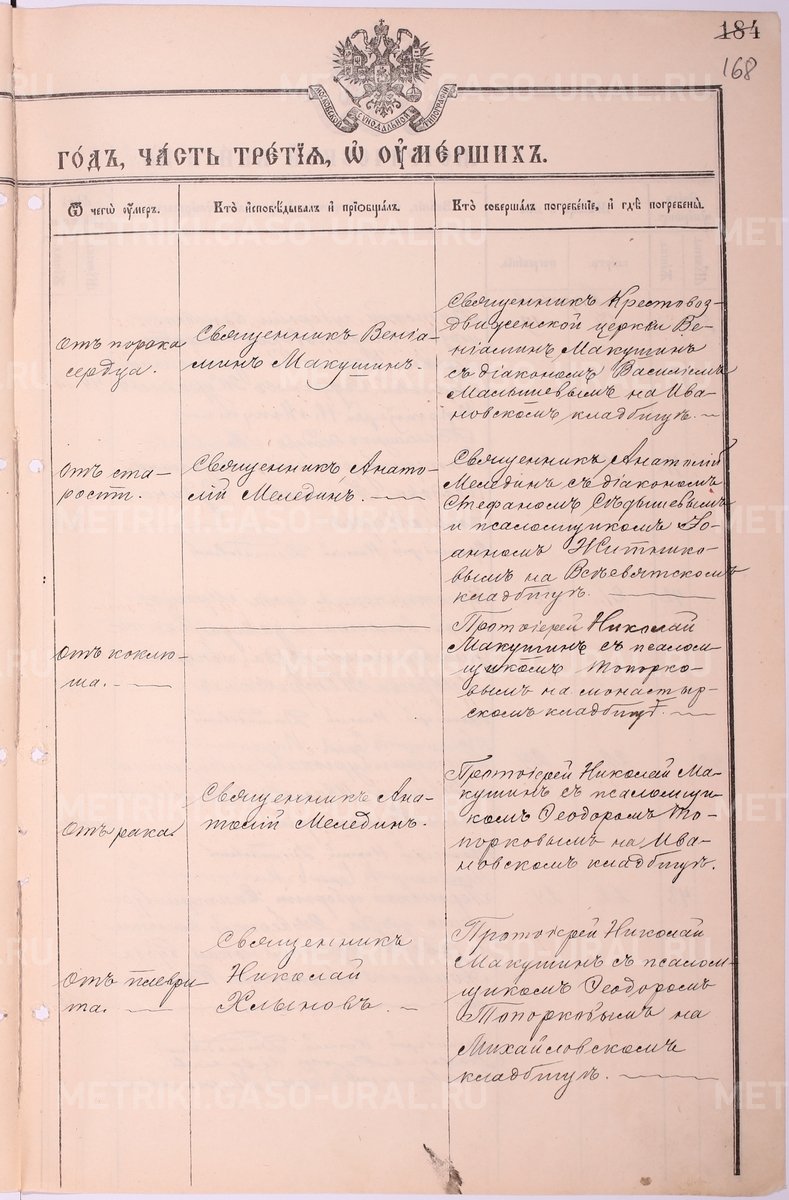 184
168
МОСКОВСКОЙ СѴНОДАЛЬНОЙ ТИПОГРАФІИ
ГО́ДЪ, ЧА́СТЬ ТРЕ́ТІѦ, Ѡ҆ ОУ҆МЕ́РШИХЪ.
Ѿ чегѡ̀ оу҆́меръ.
Кто̀ и҆сповѣ́дывалъ и҆ прїѻбща́лъ.
Кто̀ соверша́лъ погребе́нїе, и҆ гдѣ̀ погребены̀.
Отъ порока
сердца.
Священникъ Веніа-
минъ Макушинъ.
Священникъ Крестовоз-
движенской церкви Ве-
ніаминъ Макушинъ
съ діакономъ Василіемъ
Малышевымъ на Ива-
новскомъ кладбищѣ.
Отъ ста-
рости.
Священникъ Анато-
лій Мелединъ.
Священникъ Анатолій
Мелединъ съ діакономъ
Стефаномъ Сѣдышевымъ
и псаломщикомъ Іо-
анномъ Житнико-
вымъ на Всѣсвятскомъ
кладбищѣ.
Отъ коклю-
ша.
Протоіерей Николай
Макушинъ съ псалом-
щикомъ Топорко-
вымъ на монастыр-
скомъ кладбищѣ.
Отъ рака.
Священникъ Ана-
толій Мелединъ.
Протоіерей Николай Ма-
кушинъ съ псаломщи-
комъ Ѳеодоромъ То-
порковымъ на Ива-
новскомъ кладбищѣ.
Отъ плеври-
та.
Священникъ
Николай
Хлыновъ.
Протоіерей Николай
Макушинъ съ псалом-
щикомъ Ѳеодоромъ
Топорковымъ на
Михайловскомъ
кладбищѣ.
METRIKI.GASO-URAL.RU